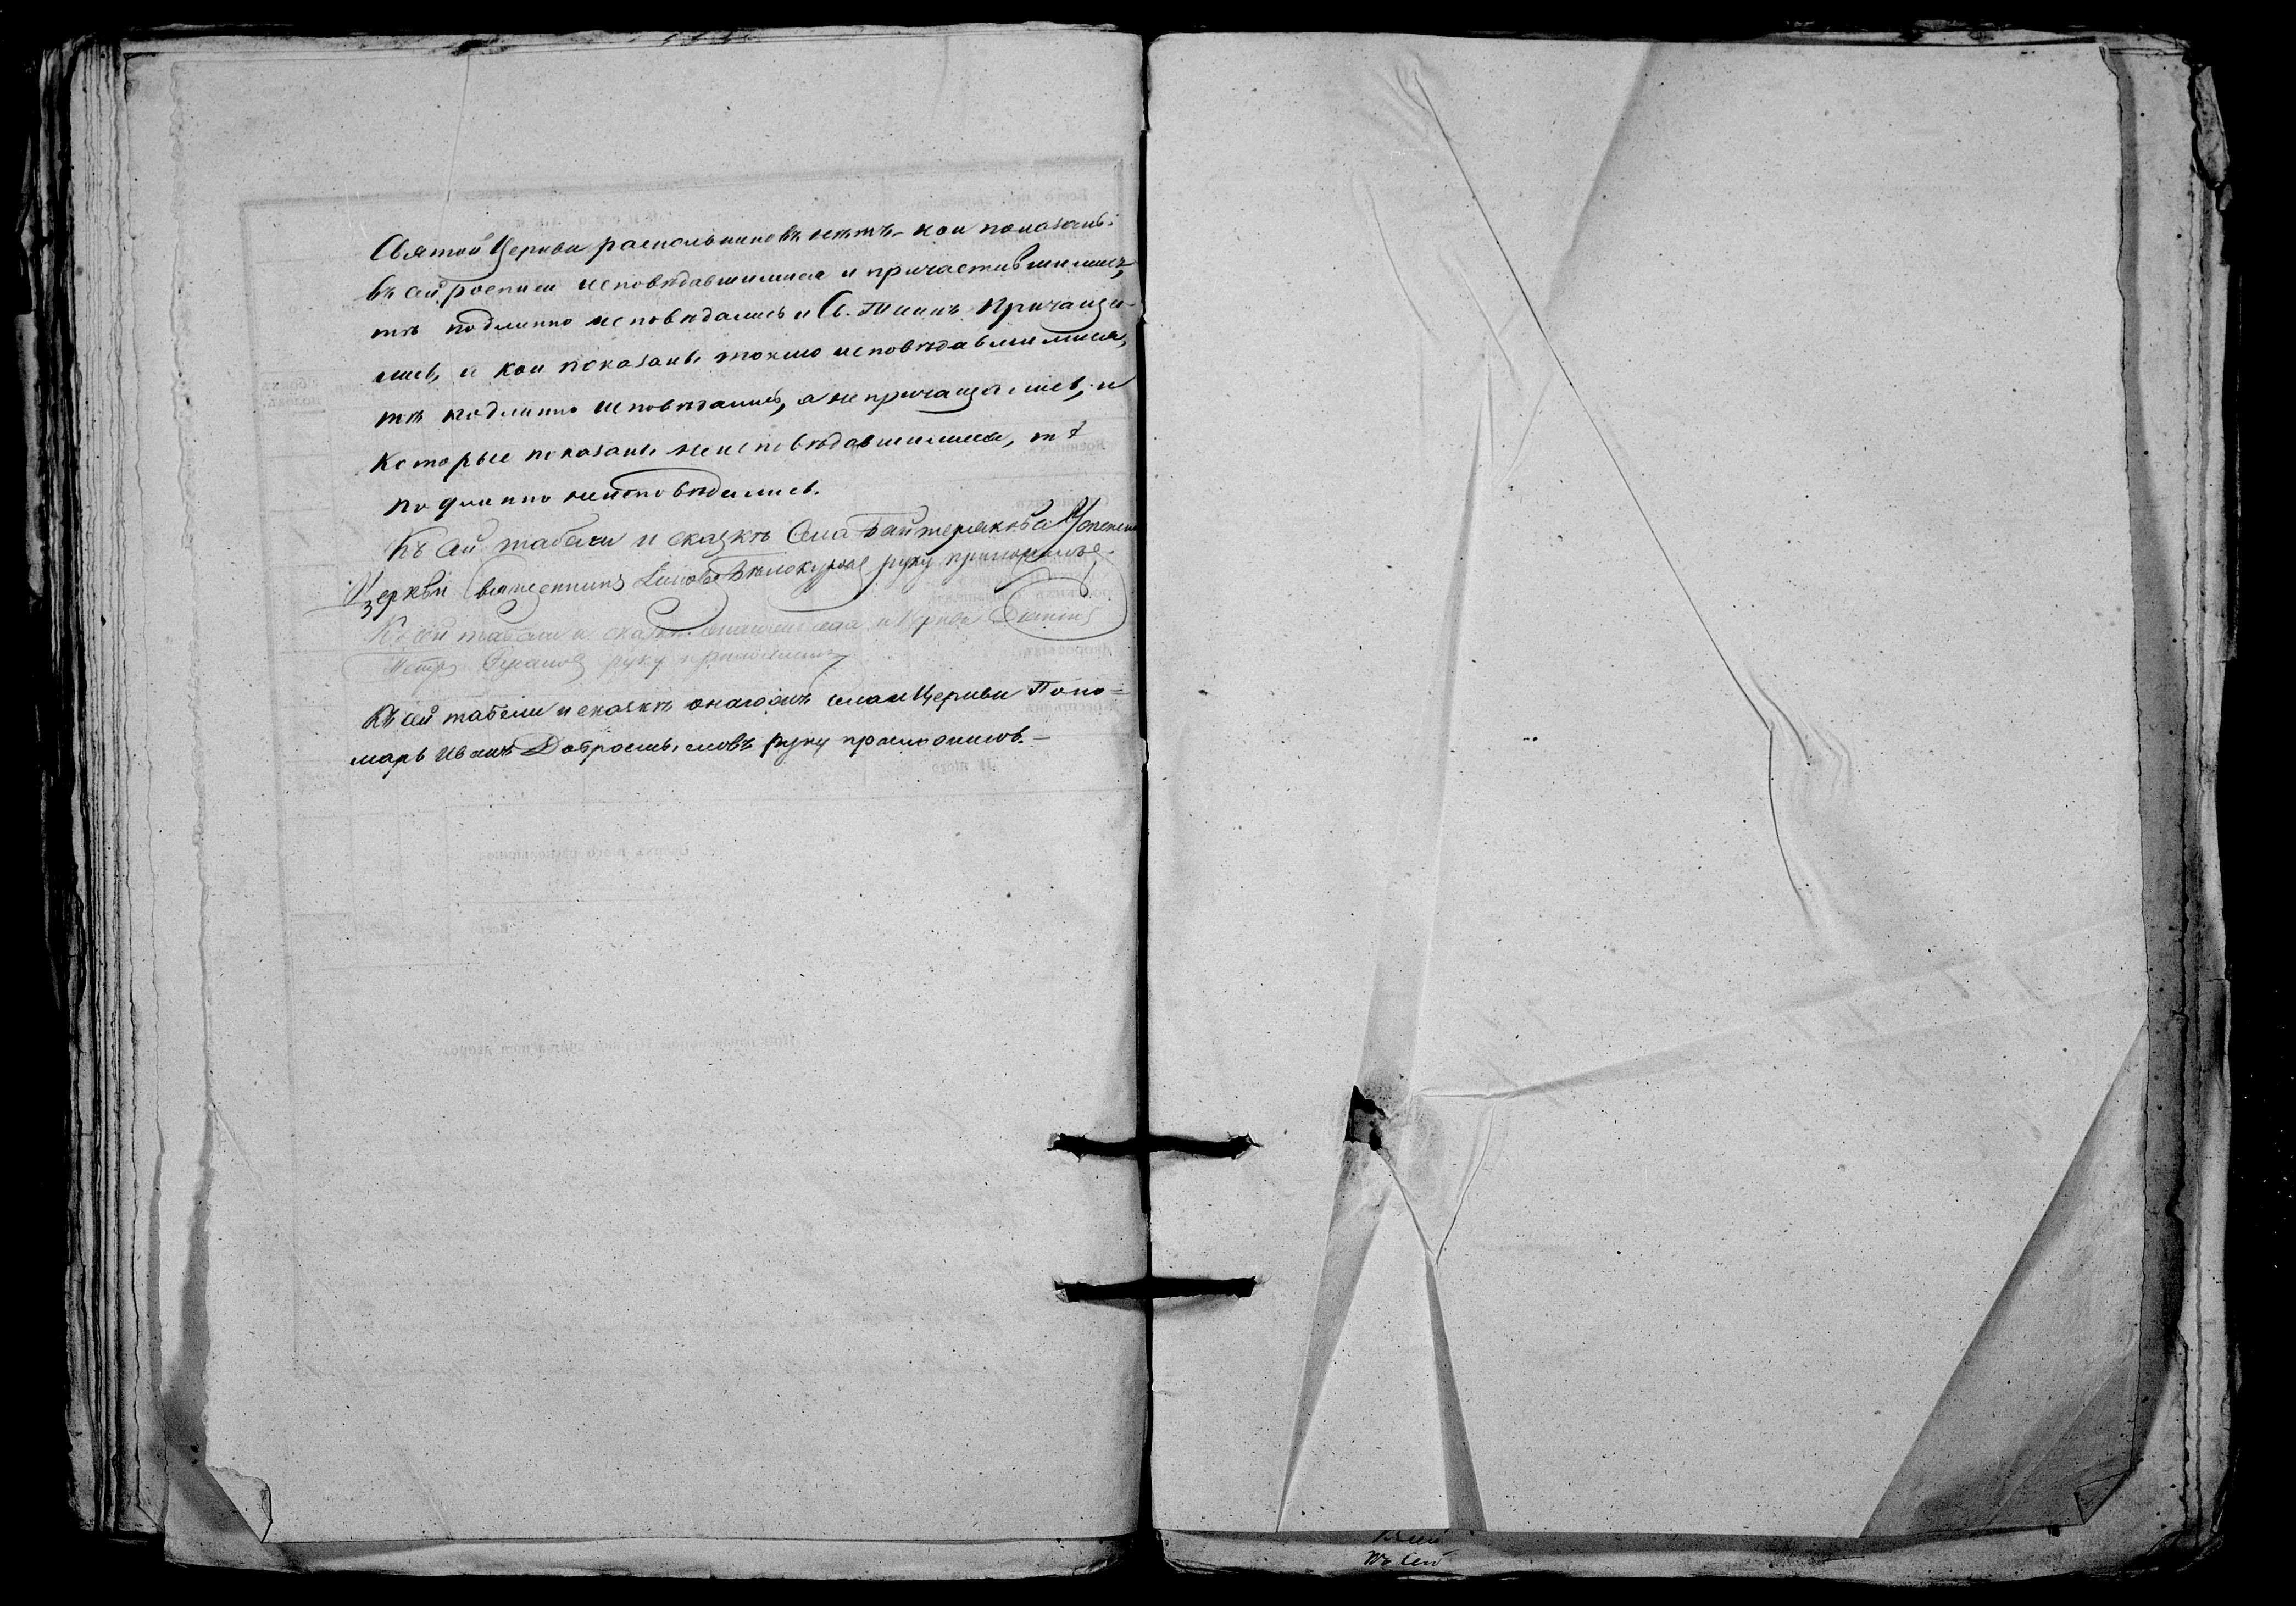 Святой Церкви раскольниковъ нѣтъ кои показаны
въ сей росписи исповѣдавшимися и причастившимися,
тѣ подлинно исповѣдались и Св. Таинъ причаща-
лись, и кои показаны токмо исповѣдавшимися,
тѣ подлинно исповѣдались, а не причащались, и
которые показаны неисповѣдавшимися, тѣ
подлинно неисповѣдались.
Къ сей табели и сказкѣ села Байтерякова Успенск
Церкви священникъ руку приложилъ.
Къ сей табели и сказкѣ села и Церкви Діаконъ
Петръ руку приложилъ
Къ сей табели и сказкѣ онагожъ села и Церкви Поно=
марь Иванъ Добросмысловъ руку приложилъ.—
Къ сей
Къ сей